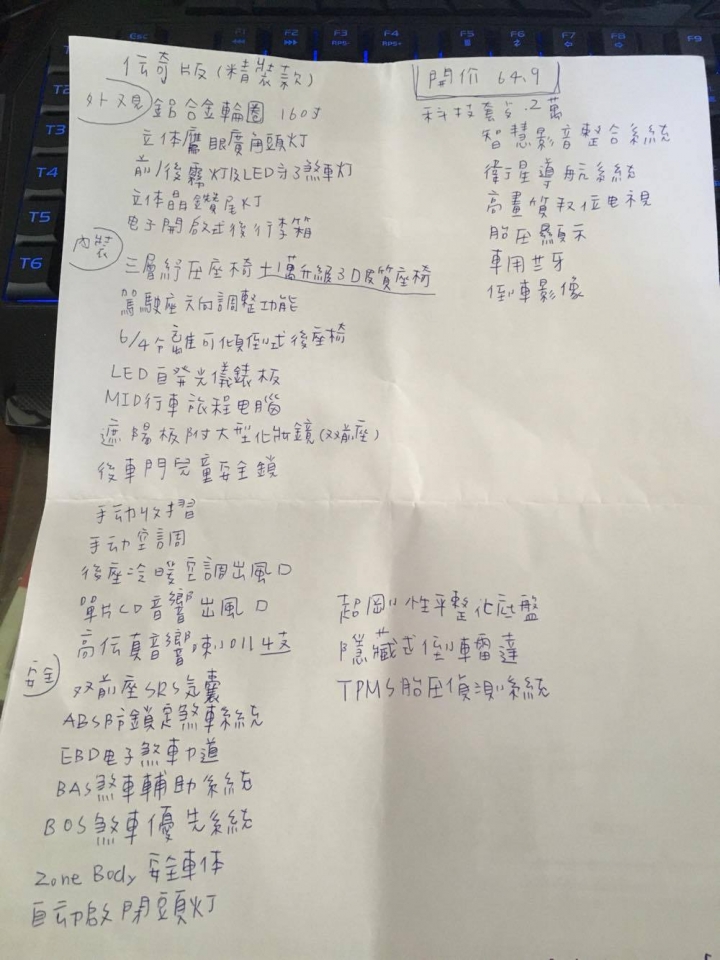 F2
F3
F4
F5
F6
F7
F8
F9
T3
T4
T5
T6
伝奇版(精裝款)
外观 鋁合金輪圈 16吋
立体鷹眼廣角頭灯
前/後霧灯及LED第3煞車灯
立体晶鑽尾灯
电子開啟式後行李箱
內裝
三層紓压座椅 ±1萬升級3D皮質座椅
駕駛座六向調整功能
6/4分離可傾倒式後座椅
LED自発光儀錶板
MID行車旅程电腦
遮陽板附大型化妝鏡(双前座)
後車門兒童安全鎖
手动收摺
手动空調
後座冷暖空調出風口
單片CD音響出風口
高伝真音響喇叭4支
安全
双前座SRS気囊
ABS防鎖定煞車系統
EBD电子煞車力道
BAS煞車輔助系統
BOS煞車優先系統
Zone Body 安全車体
自动啟閉頭灯
開价 64.9
科技套 .2萬
智慧影音整合系統
衛星導航系統
高畫質収位电視
胎压顯示
車用芽牙
倒車影像
超剛性平整化底盤
隱藏式倒車雷達
TPMS胎压偵測系統